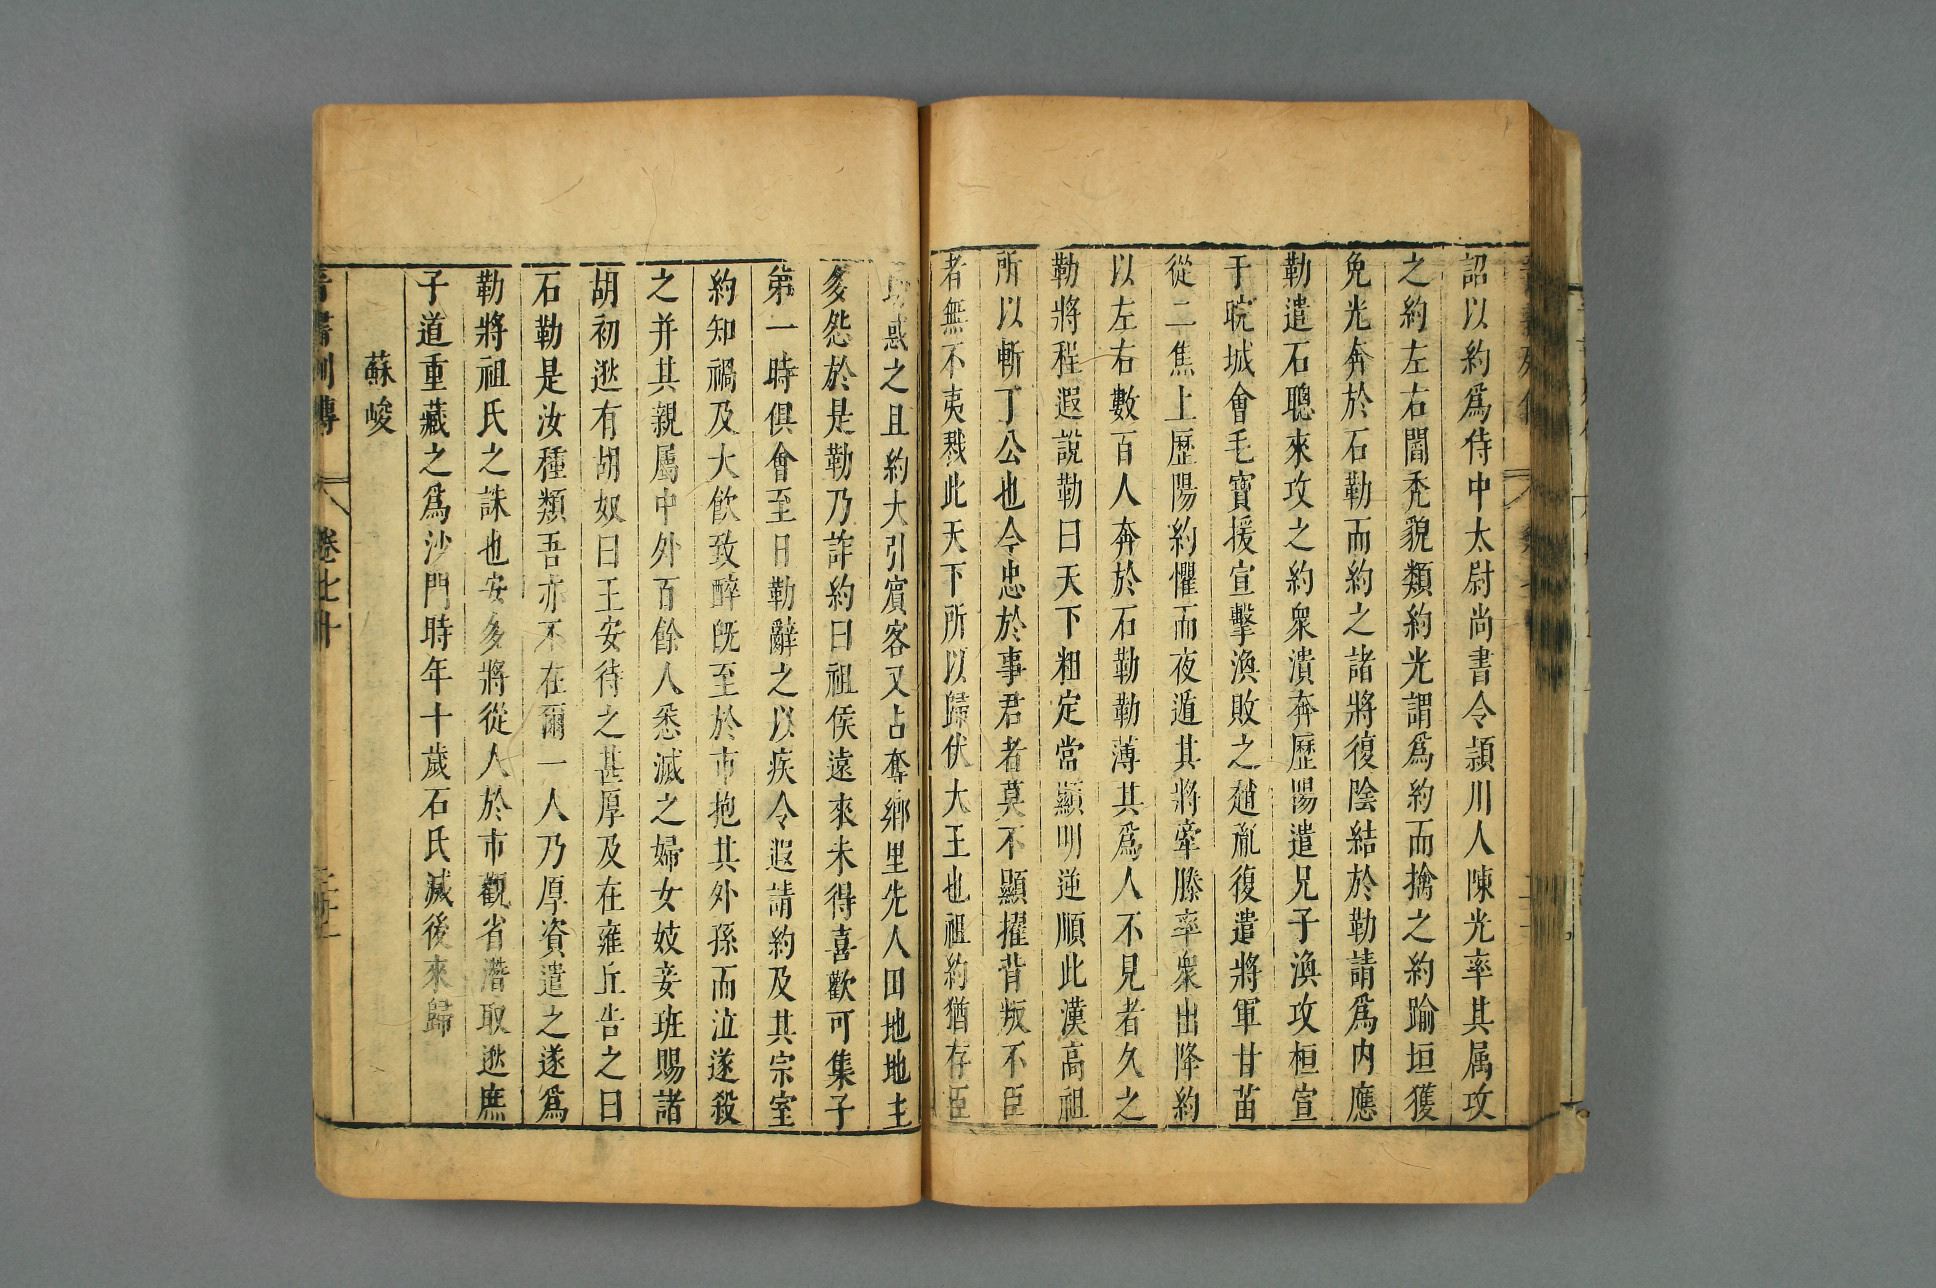 詔以約爲侍中太尉尚書令潁川人陳光率其属攻
之約左右閻禿貌類約光謂爲約而擒之約踰垣獲
免光奔於石勒而約之諸將復陰結於勒請爲内應
勒遣石聰來攻之約衆潰奔歷陽遣兄子渙攻桓宣
于皖城會毛寶援宣擊渙敗之趙胤復遣將軍甘苗
從二焦上歷陽約懼而夜遁其將牽騰率衆出降約
以左右數百人奔於石勒勒薄其爲人不見者久之
勒將程遐說勒曰天下粗定當顯明逆順此漢高祖
所以斬丁公也今忠於事君者莫不顯擢背叛不臣
者無不夷戮此天下所以歸伏大王也祖約猶存臣
切惑之且約大引賓客又占奪鄉里先人田地地主
多怨於是勒乃詐約曰祖侯遠來未得喜歡可集子
第一時俱會至日勒辭之以疾令遐請約及其宗室
約知禍及大飮致醉旣至於市抱其外孫而泣遂殺
之并其親屬中外百餘人悉滅之婦女妓妾班賜諸
胡初逖有胡奴曰王安待之甚厚及在雍丘告之曰
石勒是汝種類吾亦不在爾一人乃厚資遣之遂爲
勒將祖氏之誅也安多將從人於市觀省潛取逖庶
子道重藏之爲沙門時年十歲石氏滅後來歸
蘇峻
晋書列傳 卷七十